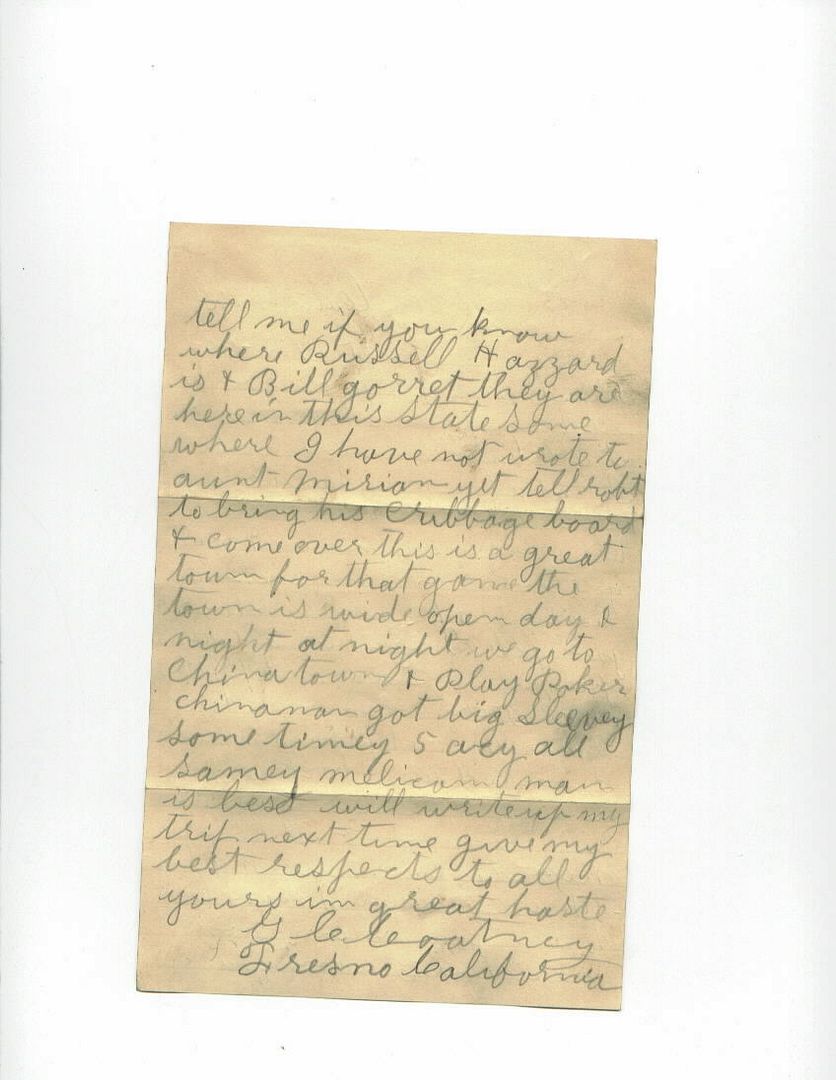 tell me if you know
where Russell Hazzard
is & Bill gorret they are
here in this state some
where I have not wrote to
aunt Mirian yet tell robt
to bring his Cribbage board
& come over this is a great
town for that game the
town is wide open day &
night at night we go to
China town & Play Poker
chinaman got big Sleevey
some timey 5 acy all
samey melican man
is best will write up my
trip next time give my
best respects to all
yours in great haste
G C Coatney
Fresno California